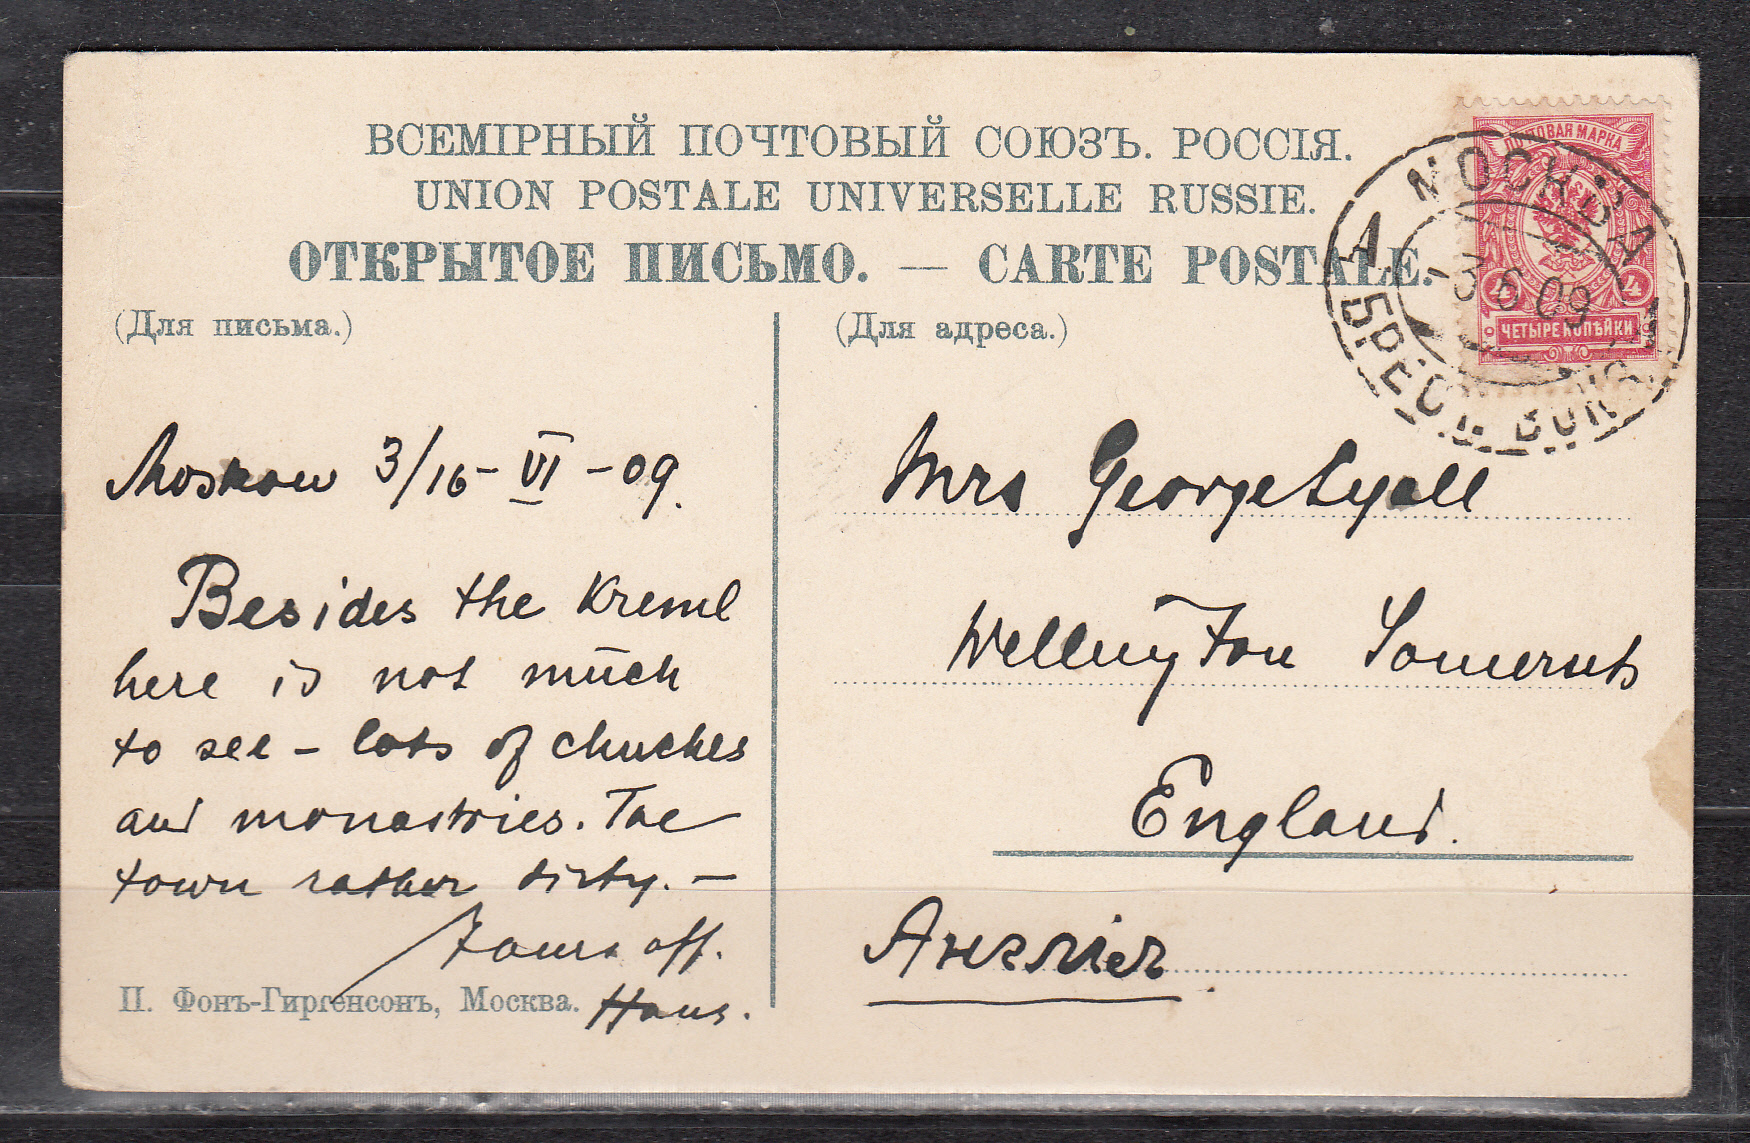 ВСЕМІРНЫЙ ПОЧТОВЫЙ СОЮЗЪ. РОССІЯ.
UNION POSTALE UNIVERSELLE RUSSIE.
ОТКРЫТОЕ ПИСЬМО. — CARTE POSTALE.
(Для письма.)
Moskow 3/16 - VI - 09.
Besides the Kreml
here is not much
to see - lots of chuches
and monastries. The
town rather dirty. -
Yours aff.
Hans.
П. Фонъ-Гиргенсонъ, Москва.
(Для адреса.)
Mrs George Lyall
Wellington Somersets
England.
Англія
ПОЧТОВАЯ МАРКА
4 4
ЧЕТЫРЕ КОПѢЙКИ
МОСКВА
3 6 09